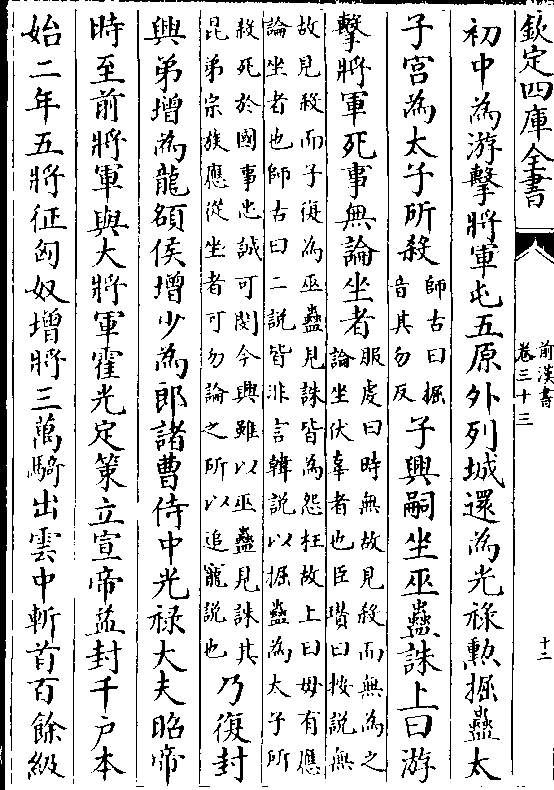 欽定四庫全書
前漢書
卷三十三
十二
初中為游擊將軍屯五原外列城還為光祿勲掘蠱太
子宫為太子所殺
師古曰掘
音其勿反
子興嗣坐巫蠱誅上曰游
擊將軍死事無論坐者
服虔曰時無故見殺而無為之
論坐伏辜者也臣瓚曰按説無
故見殺而子復為巫蠱見誅皆為怨枉故上曰毋有應
論坐者也師古曰二説皆非言韓説以掘蠱為太子所
殺死於國事忠誠可閔今興雖以巫蠱見誅其
昆弟宗族應從坐者可勿論之所以追寵説也
乃復封
興弟增為龍頟侯增少為郎諸曹侍中光祿大夫昭帝
時至前將軍與大將軍霍光定策立宣帝益封千户本
始二年五將征匈奴增將三萬騎出雲中斬首百餘級